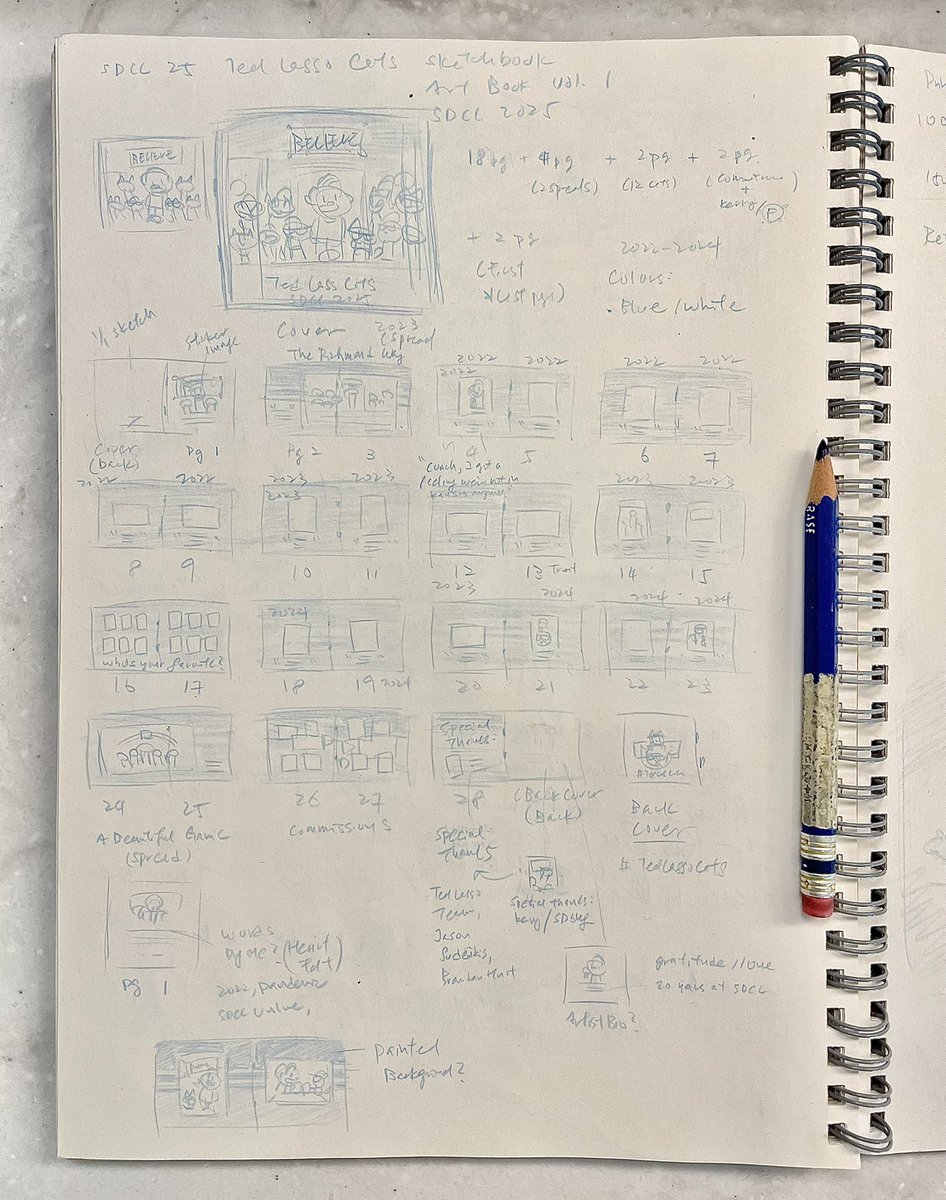 SDCC 25 Ted Lasso Cats Sketchbook
Art Book Vol. 1
SDCC 2025
BELIEVE
BELIEVE
18 pg + 4 pg + 2 pg + 2 pg
(2 spreads) (12 cats) (Commissions +
Kerry/F)
+ 2 pg
(First
& Last pgs)
2022-2024
Colors:
. Blue/White
Ted Lasso Cats
SDCC 2025
1/1 sketch
sticker
image
Cover
2023
(Spread
The Richmond Way
2022 2022
2022
2022 2022
Cover
(back)
Pg 1
Pg 2 3
4 5
6 7
"Coach, I got a
feeling we're not in
Kansas anymore
2022 2022
2023 2023
2023
2023 2023
8 9
10 11
12 13 Trent
14 15
2023
2024
2024 2024
2024
who's your favorite?
16 17
18 19 2024
20 21
22 23
Special
Thanks:
24 25
26 27
28
(Back Cover
(Back)
Back
Cover
A Beautiful Game
(Spread)
Commissions
Special
Thanks
# TedLassoCats
Ted Lasso
Team,
Jason
Sudeikis,
Brendan Hunt
Special thanks:
Pg 1
(Heart
Felt)
2022, pandemic
SDCC
Artist Bio?
gratitude / love
20 years at SDCC
Painted
Background?
ERASE
100